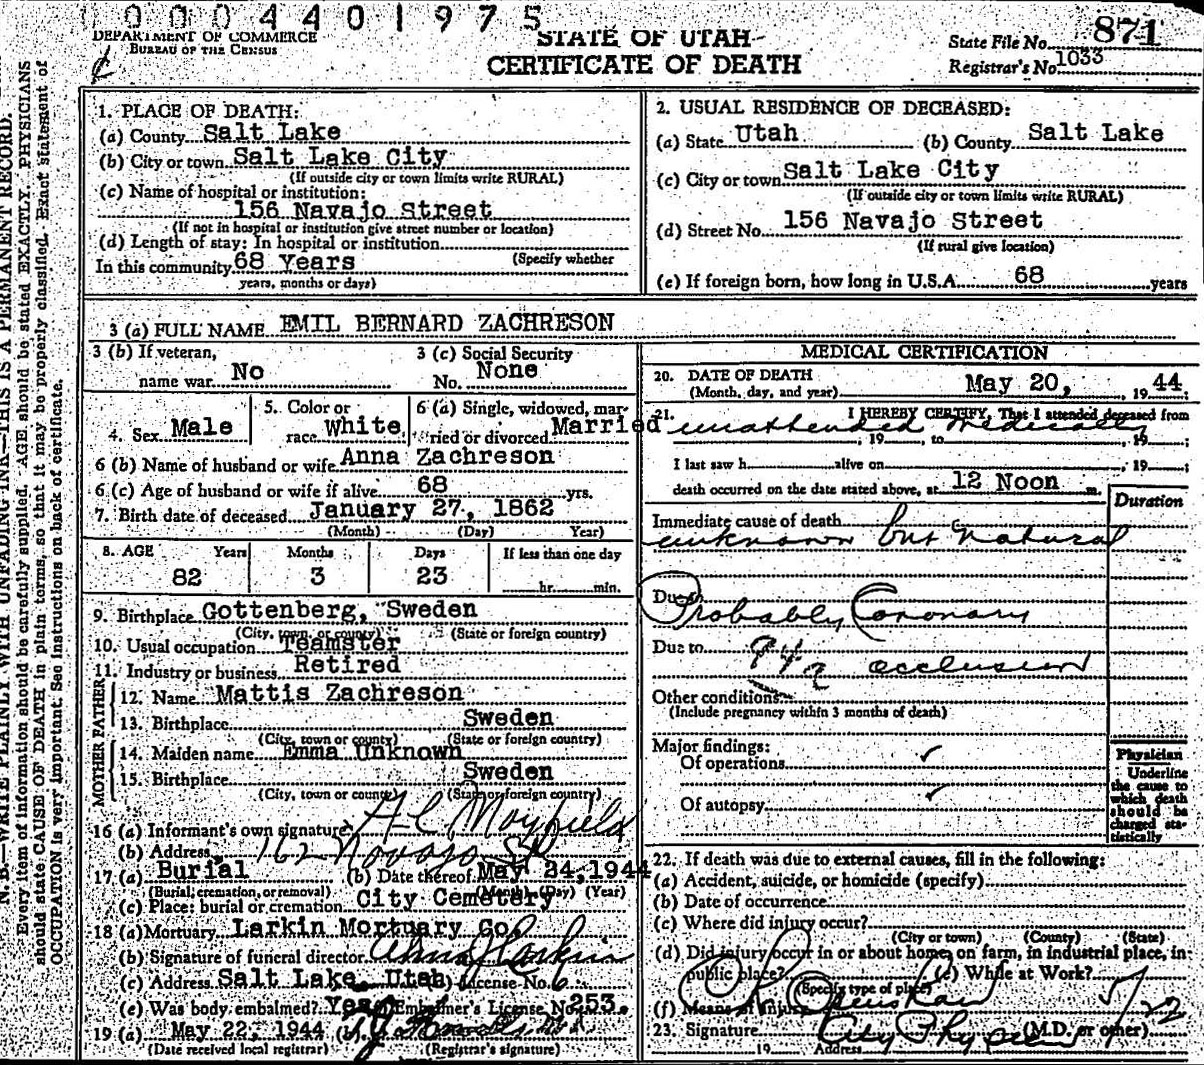 0 0 0 4 4 0 1 9 7 5
DEPARTMENT OF COMMERCE
BUREAU OF THE CENSUS
STATE OF UTAH
CERTIFICATE OF DEATH
State File No. 871
Registrar's No. 1033
N. B.—WRITE PLAINLY WITH UNFADING INK—THIS IS A PERMANENT RECORD.
Every item of information should be carefully supplied. AGE should be stated EXACTLY. PHYSICIANS
should state CAUSE OF DEATH in plain terms, so that it may be properly classified. Exact statement of
OCCUPATION is very important. See instructions on back of certificate.
1. PLACE OF DEATH:
(a) County Salt Lake
(b) City or town Salt Lake City
(If outside city or town limits write RURAL)
(c) Name of hospital or institution:
156 Navajo Street
(If not in hospital or institution give street number or location)
(d) Length of stay: In hospital or institution
(Specify whether
In this community 68 Years
years, months or days)
2. USUAL RESIDENCE OF DECEASED:
(a) State Utah (b) County Salt Lake
(c) City or town Salt Lake City
(If outside city or town limits write RURAL)
(d) Street No. 156 Navajo Street
(If rural give location)
(e) If foreign born, how long in U.S.A. 68 years
3 (a) FULL NAME EMIL BERNARD ZACHRESON
3 (b) If veteran, name war No
3 (c) Social Security No. None
4. Sex Male
5. Color or race White
6 (a) Single, widowed, married or divorced Married
6 (b) Name of husband or wife Anna Zachreson
6 (c) Age of husband or wife if alive 68 yrs.
7. Birth date of deceased January 27, 1862
(Month) (Day) Year)
8. AGE Years Months Days If less than one day
82 3 23 hr. min.
9. Birthplace Gottenberg, Sweden
(City, town, or county) (State or foreign country)
10. Usual occupation Teamster
11. Industry or business Retired
FATHER
12. Name Mattis Zachreson
13. Birthplace Sweden
(City, town or county) (State or foreign country)
MOTHER
14. Maiden name Emma Unknown
15. Birthplace Sweden
(City, town or county) (State or foreign country)
16 (a) Informant's own signature Mayfield
(b) Address 162 Navajo St
17 (a) Burial (b) Date thereof May 24, 1944
(Burial, cremation, or removal) (Month) (Day) (Year)
(c) Place: burial or cremation City Cemetery
18 (a) Mortuary Larkin Mortuary Co.
(b) Signature of funeral director Larkin
(c) Address Salt Lake, Utah License No. 6
(e) Was body embalmed? Yes Embalmer's License No. 253.
19 (a) May 22, 1944 (b)
(Date received local registrar) (Registrar's signature)
MEDICAL CERTIFICATION
20. DATE OF DEATH
(Month, day, and year) May 20, , 19 44
21. I HEREBY CERTIFY, That I attended deceased from
unattended medically
, 19 , to , 19 ;
I last saw h alive on , 19 ;
death occurred on the date stated above, at 12 Noon m.
Duration
Immediate cause of death
unknown but natural
Due to
Probably Coronary
Due to 94a occlusion
Other conditions
(Include pregnancy within 3 months of death)
Major findings:
Of operations ✓
Of autopsy ✓
Physician
Underline
the cause to
which death
should be
charged sta-
tistically
22. If death was due to external causes, fill in the following:
(a) Accident, suicide, or homicide (specify)
(b) Date of occurrence
(c) Where did injury occur?
(City or town) (County) (State)
(d) Did injury occur in or about home, on farm, in industrial place, in
public place? (e) While at Work?
(Specify type of place)
(f) Means of injury 5/22
23. Signature City Physician (M.D. or other)
19 Address